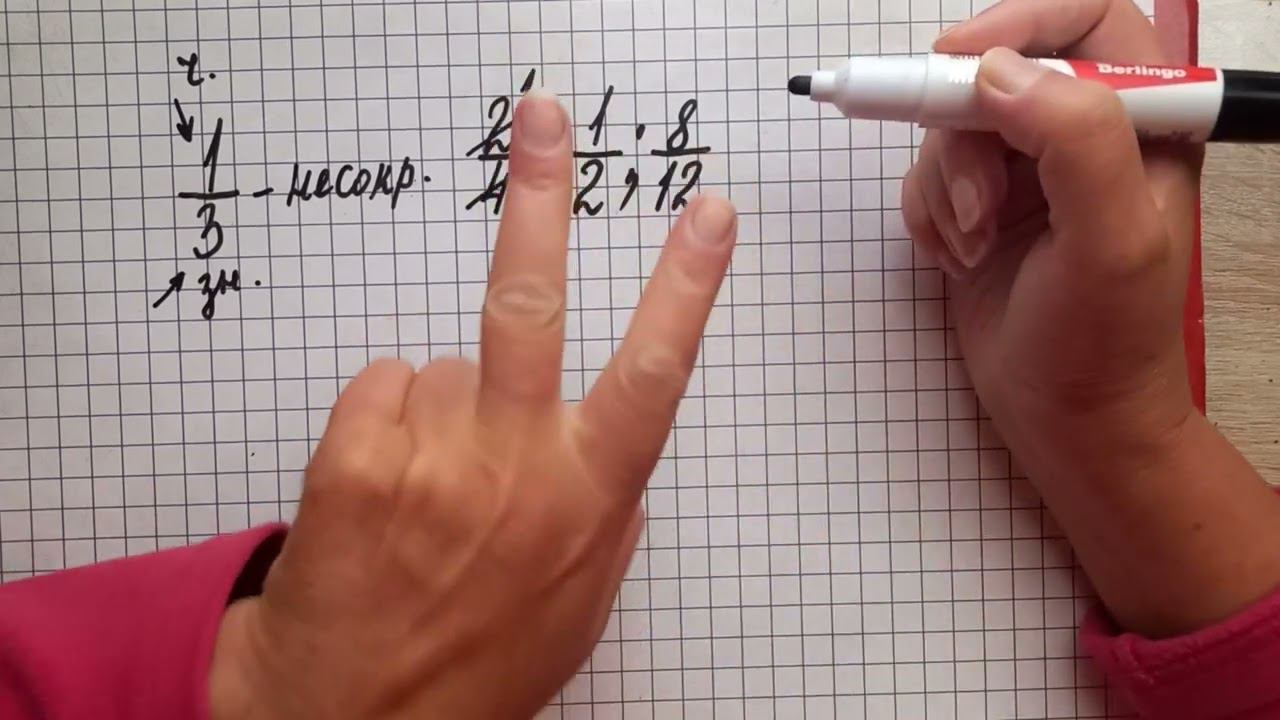 ч.
1/3 - несокр.
зн.
2/4 1 1/2; 8/12
Berlingo